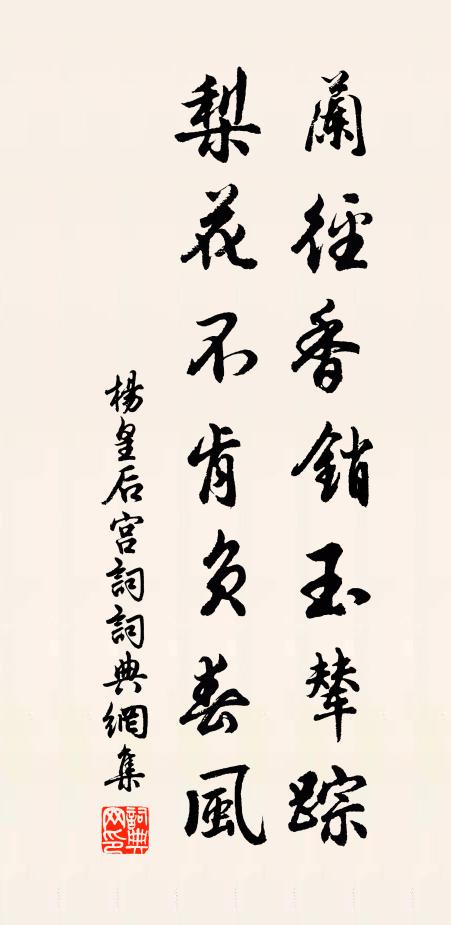 蘭徑香銷玉輦踪
梨花不肯負春風
楊皇后宮詞詞典網集
詞典網印